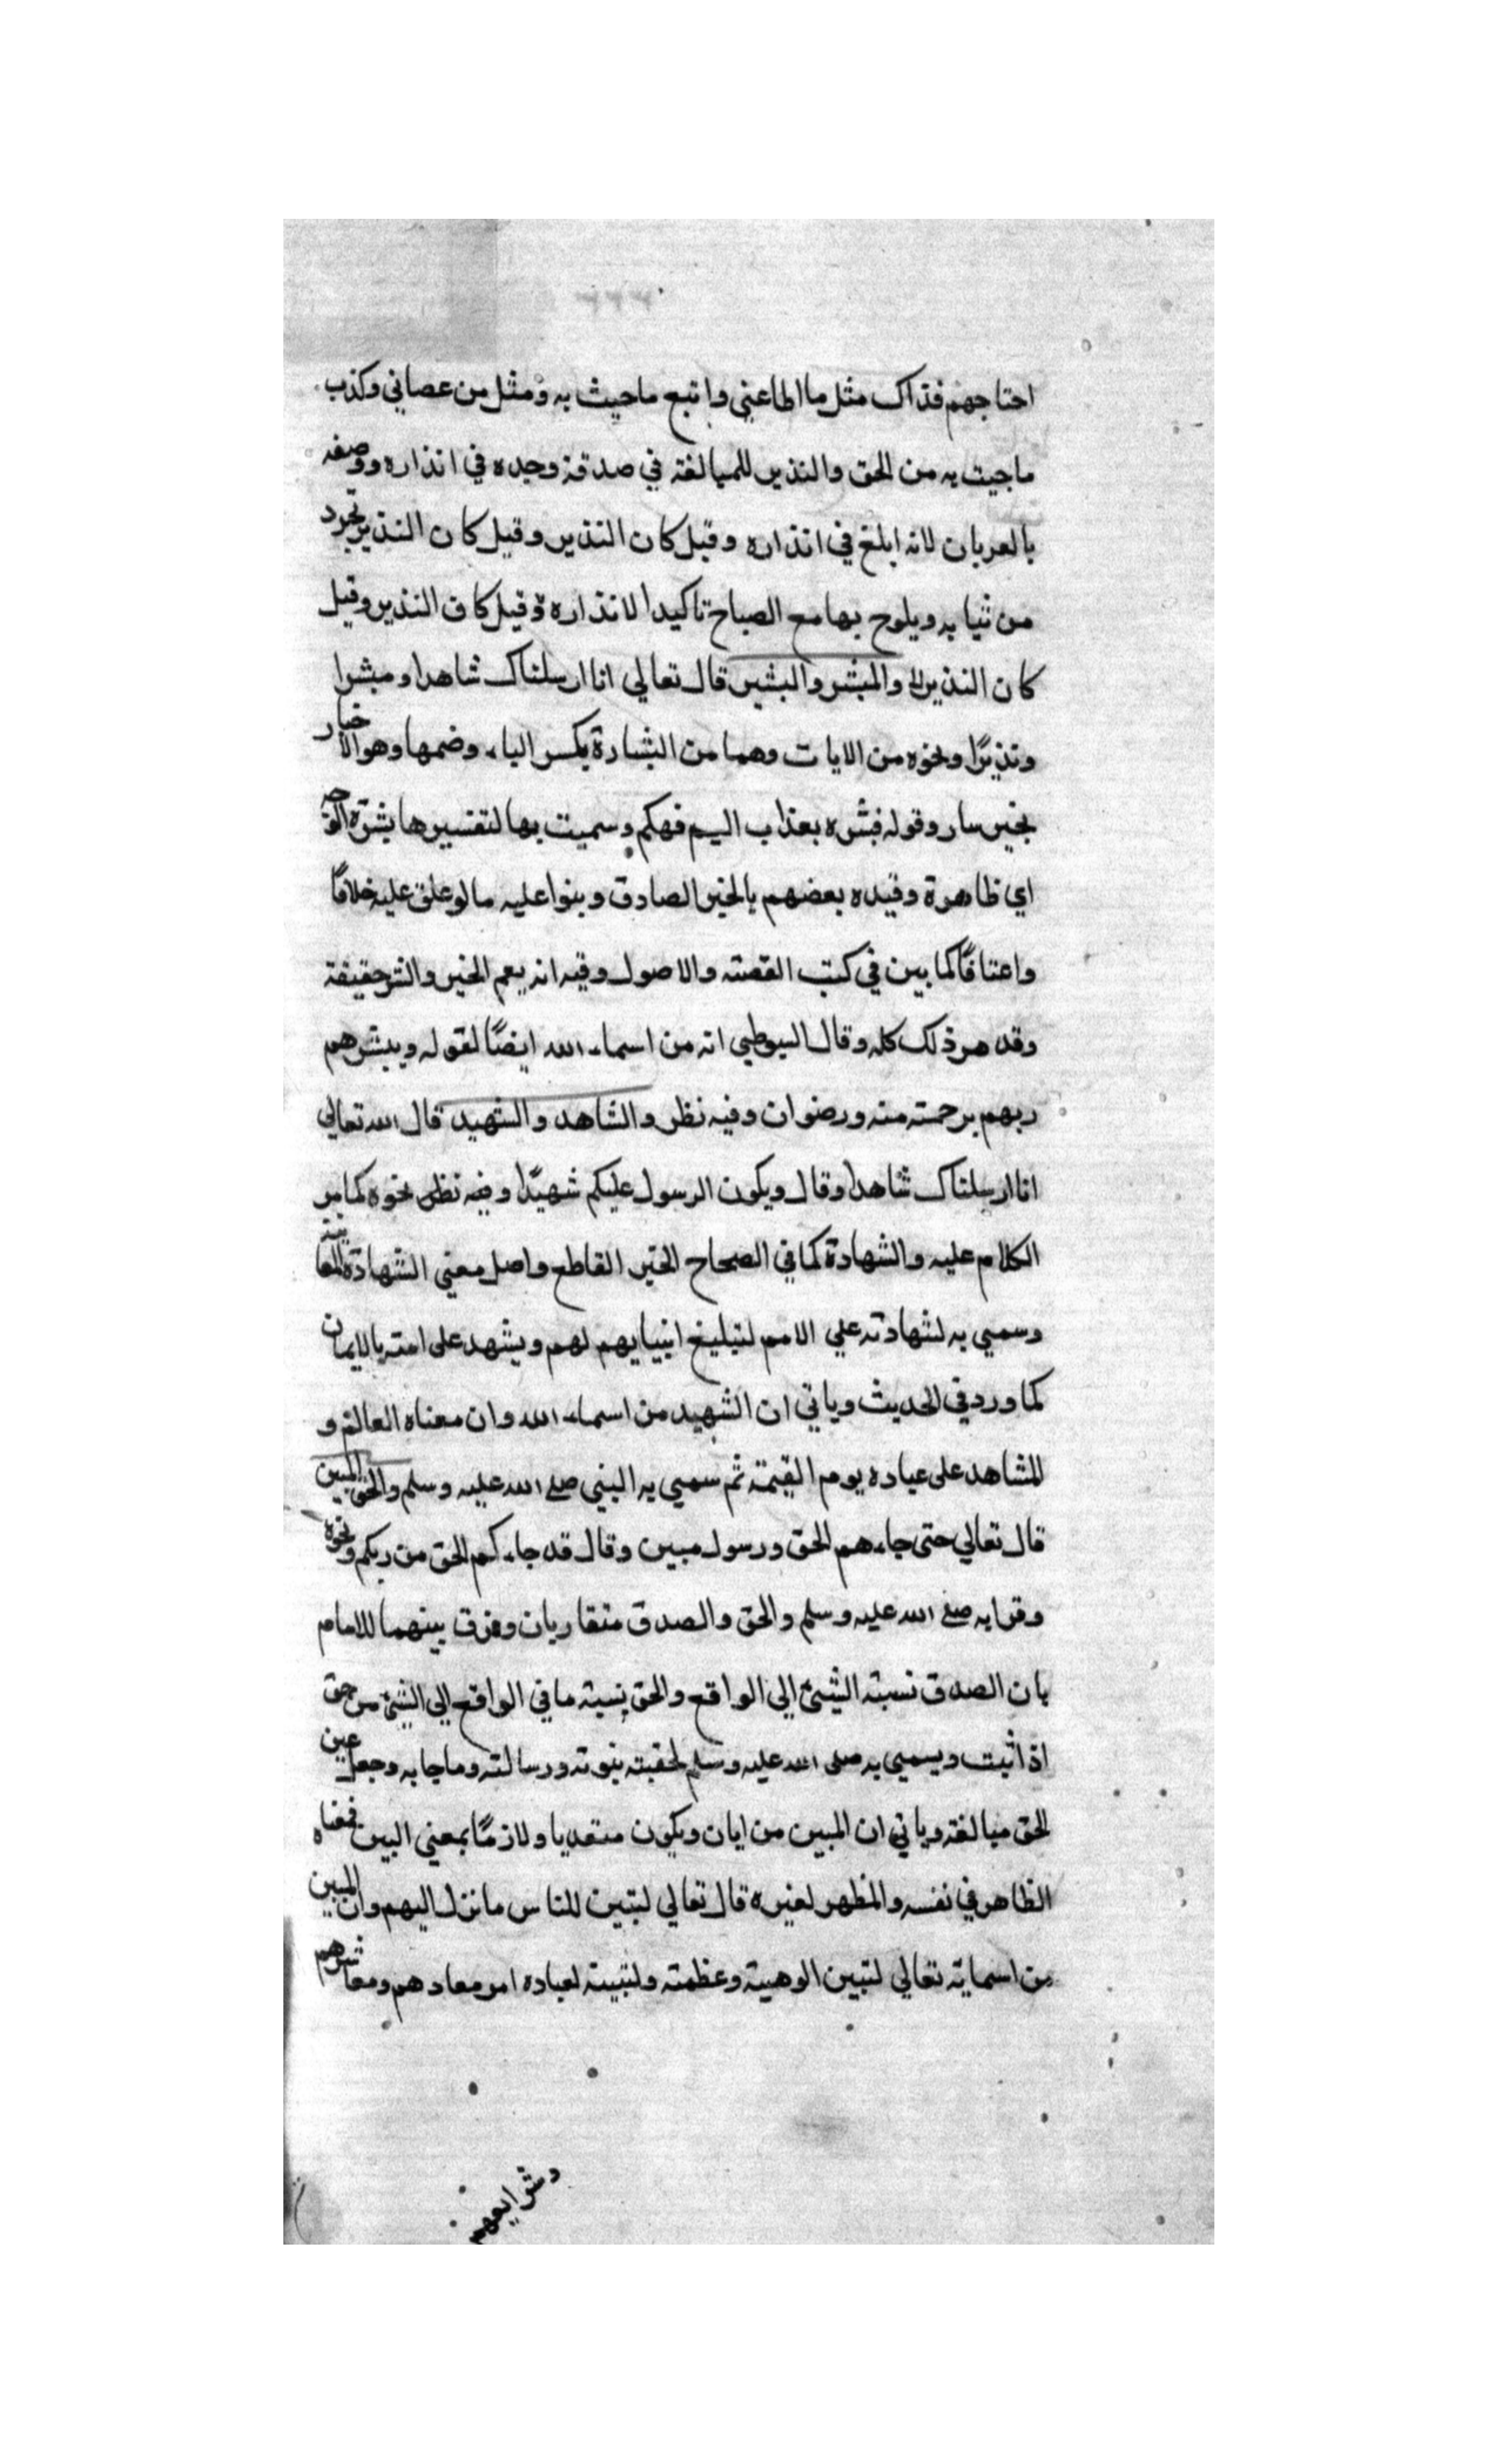 احتاجهم فذاك مثل ما اطاعني واتبع ماجيث به ومثل من عصاني وكذب
ماجيت به من الحق والنذير للمبالغة في صدقة وجده في انذاره ووصفه
بالعريان لانه ابلغ في انذاره وقيل كان النذير وقيل كان النذير تجرد
من ثيابه ويلوح بها مع الصباح تاكيدا لانذاره وقيل كان النذير وقيل
كان النذير والمبشر والبشير قال تعالي انا ارسلناك شاهدا ومبشرا
ونذيرًا ونحوه من الايات وهما من البشارة بكسر الباء وضمها وهو الاخبار
بخبر سار وقوله فبشره بعذاب اليم فهكم وسميت بها لتفسيرها بشرة الوجه
اي ظاهرة وقيده بعضهم بالخبر الصادق وبنوا عليه مالو علق عليه خلافًا
واعتافًا كما بين في كتب القصته والاصول وفيه انه يعم الخير والشر حقيقة
وقد هر ذلك كله وقال السيوطي انه من اسماء الله ايضًا لقوله ويبشرهم
ربهم برحمته منه ورضوان وفيه نظر والشاهد والشهيد قال الله تعالي
انا ارسلناك شاهدا وقال ويكون الرسول عليكم شهيدًا وفيه نظر نحوه كمامر
الكلام عليه والشهادة كما في الصحاح الخبر القاطع واصل معني الشهادة المعاينة
وسمي به لشهادته علي الامم لتبليغ انبيايهم لهم ويشهد على امته بالايمان
كما ورد في الحديث وياتي ان الشهيد من اسماء الله وان معناه العالم و
المشاهد على عباده يوم القيمة ثم سمي به النبي صلي الله عليه وسلم والحق المبين
قال تعالي حتى جاءهم الحق ورسول مبين وقال قد جاءكم الحق من ربكم ونحوه
وقرا به صلي الله عليه وسلم والحق والصدق متقاربان وفرق بينهما للامام
بان الصدق نسبته الشيئ الي الواقع والحق نسبته ما في الواقع الي الشيئ من حق
اذا ثبت ويسمي به صلى الله عليه وسلم لحقيته بنوته ورسالته وماجابه وجعل عين
الحق مبالغة وياتي ان المبين من ابان ويكون متعديا ولازمًا بمعني البين فمعناه
الظاهر في نفسه والمظهر لغيره قال تعالي لتبين للناس ما نزل اليهم وان المبين
من اسمايه تعالي لتبين الوهية وعظمته ولتبيته لعباده امر معادهم ومعاشرهم
وشرايعهم